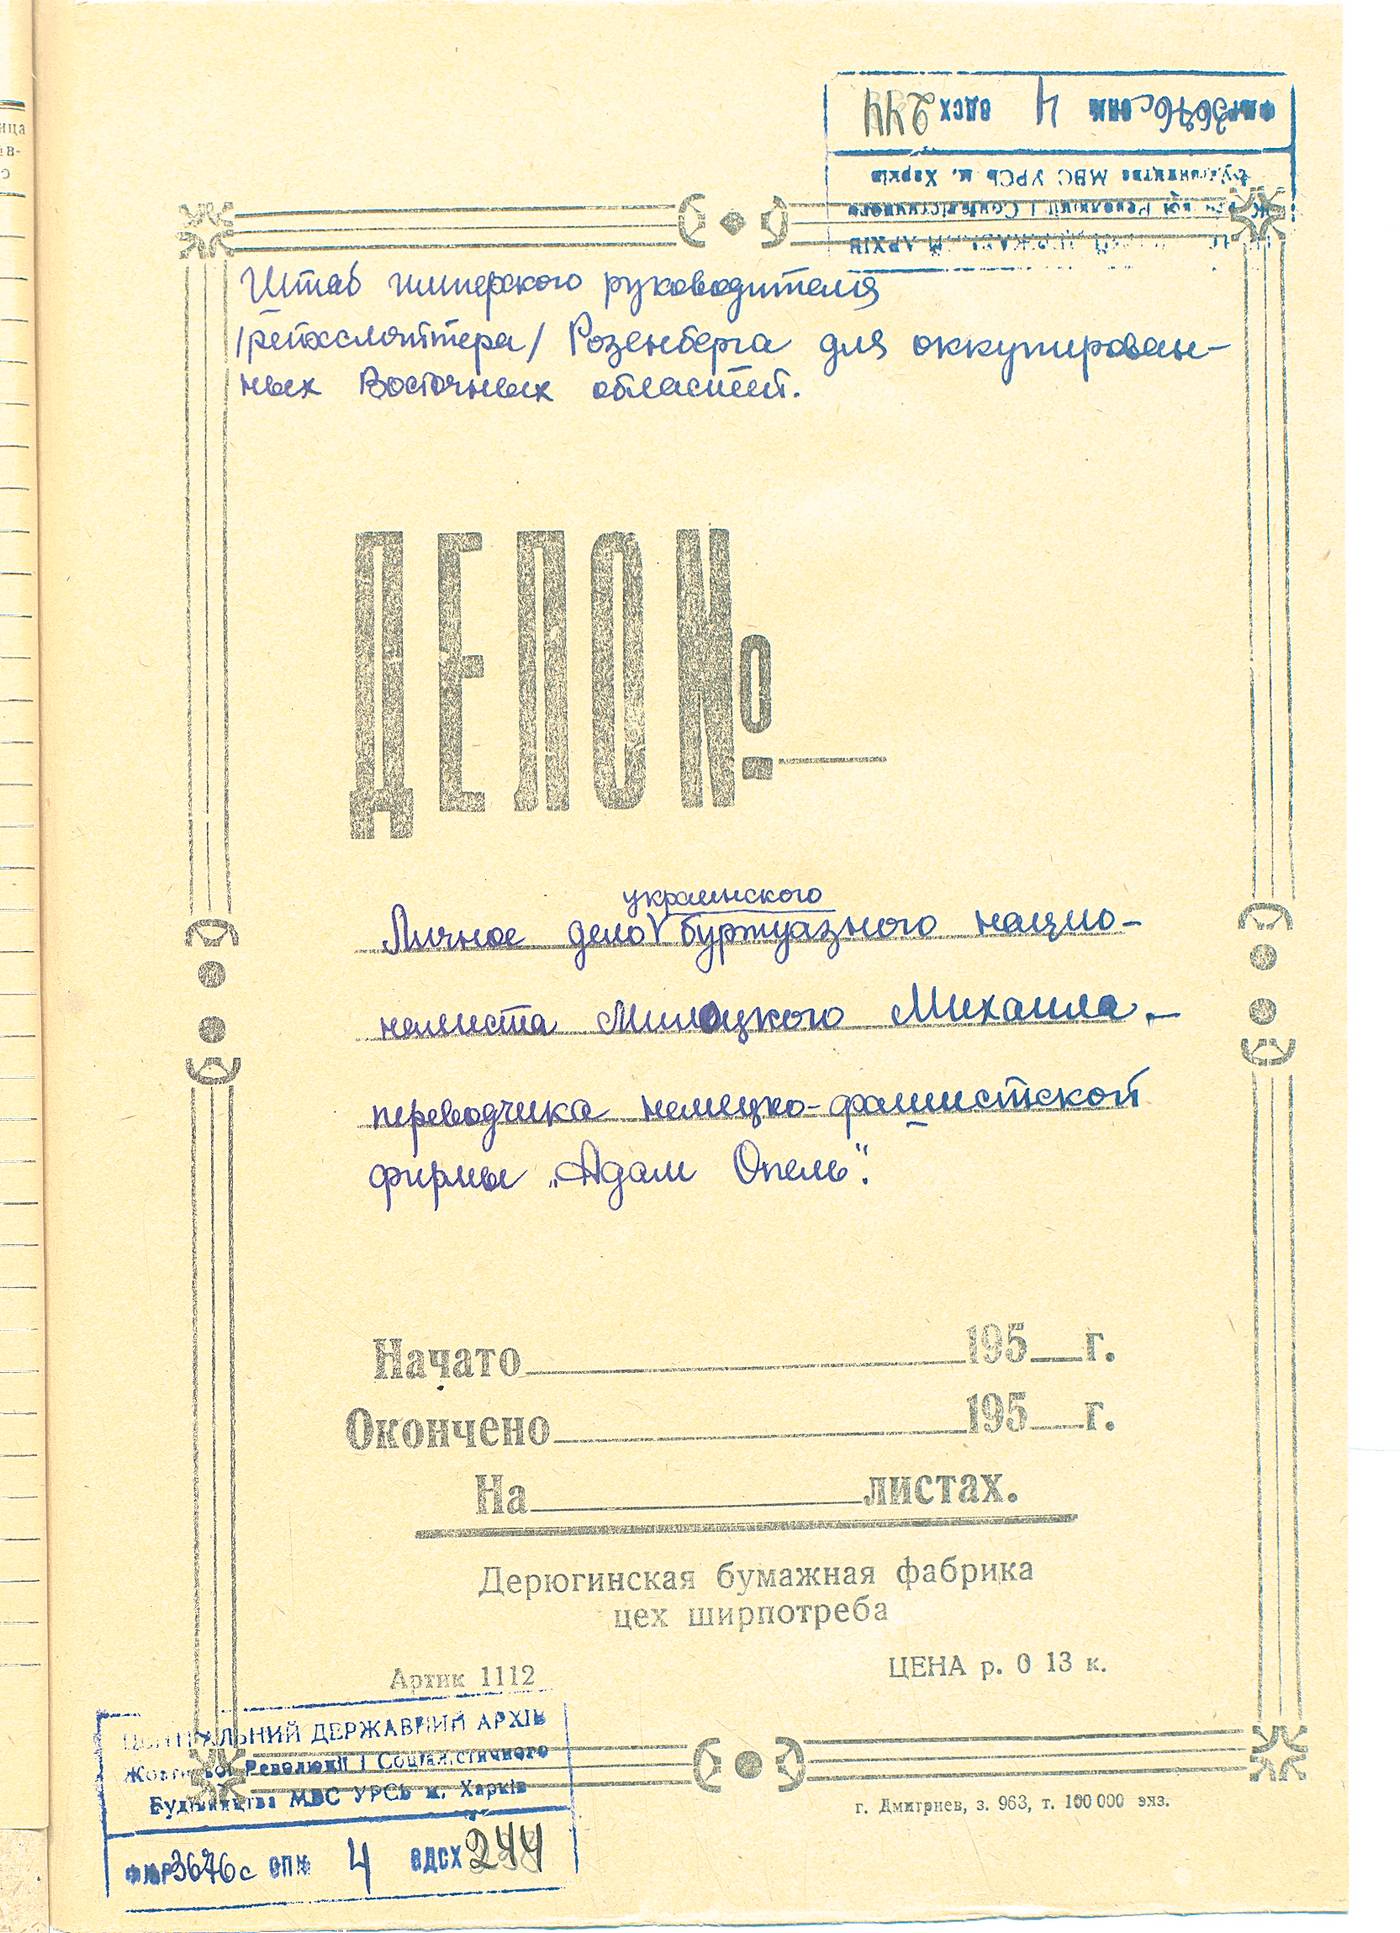 ФКР 3676с ОПИ 4 ОДСХ 244
Будівництва МВС УРСЬ м. Харків
Революції і Соціалістичного
АРХІВ
Штаб имперского руководителя
/рейхслейтера/ Розенберга для оккупирован-
ных Восточных областей.
ДЕЛО №
украинского
Личное дело буржуазного нацио-
налиста Милоцкого Михаила –
переводчика немецко-фашистской
фирмы „Адам Опель".
Начато 195 г.
Окончено 195 г.
На листах.
Дерюгинская бумажная фабрика
цех ширпотреба
Артик 1112
ЦЕНА р. 0 13 к.
ЦЕНТРАЛЬНИЙ ДЕРЖАВНИЙ АРХІВ
Жовтневої Революції і Соціалістичного
Будівництва МВС УРСЬ м. Харків
г. Дмитриев, з. 963, т. 100 000 экз.
3676с ОПИ 4 ОДСХ 244